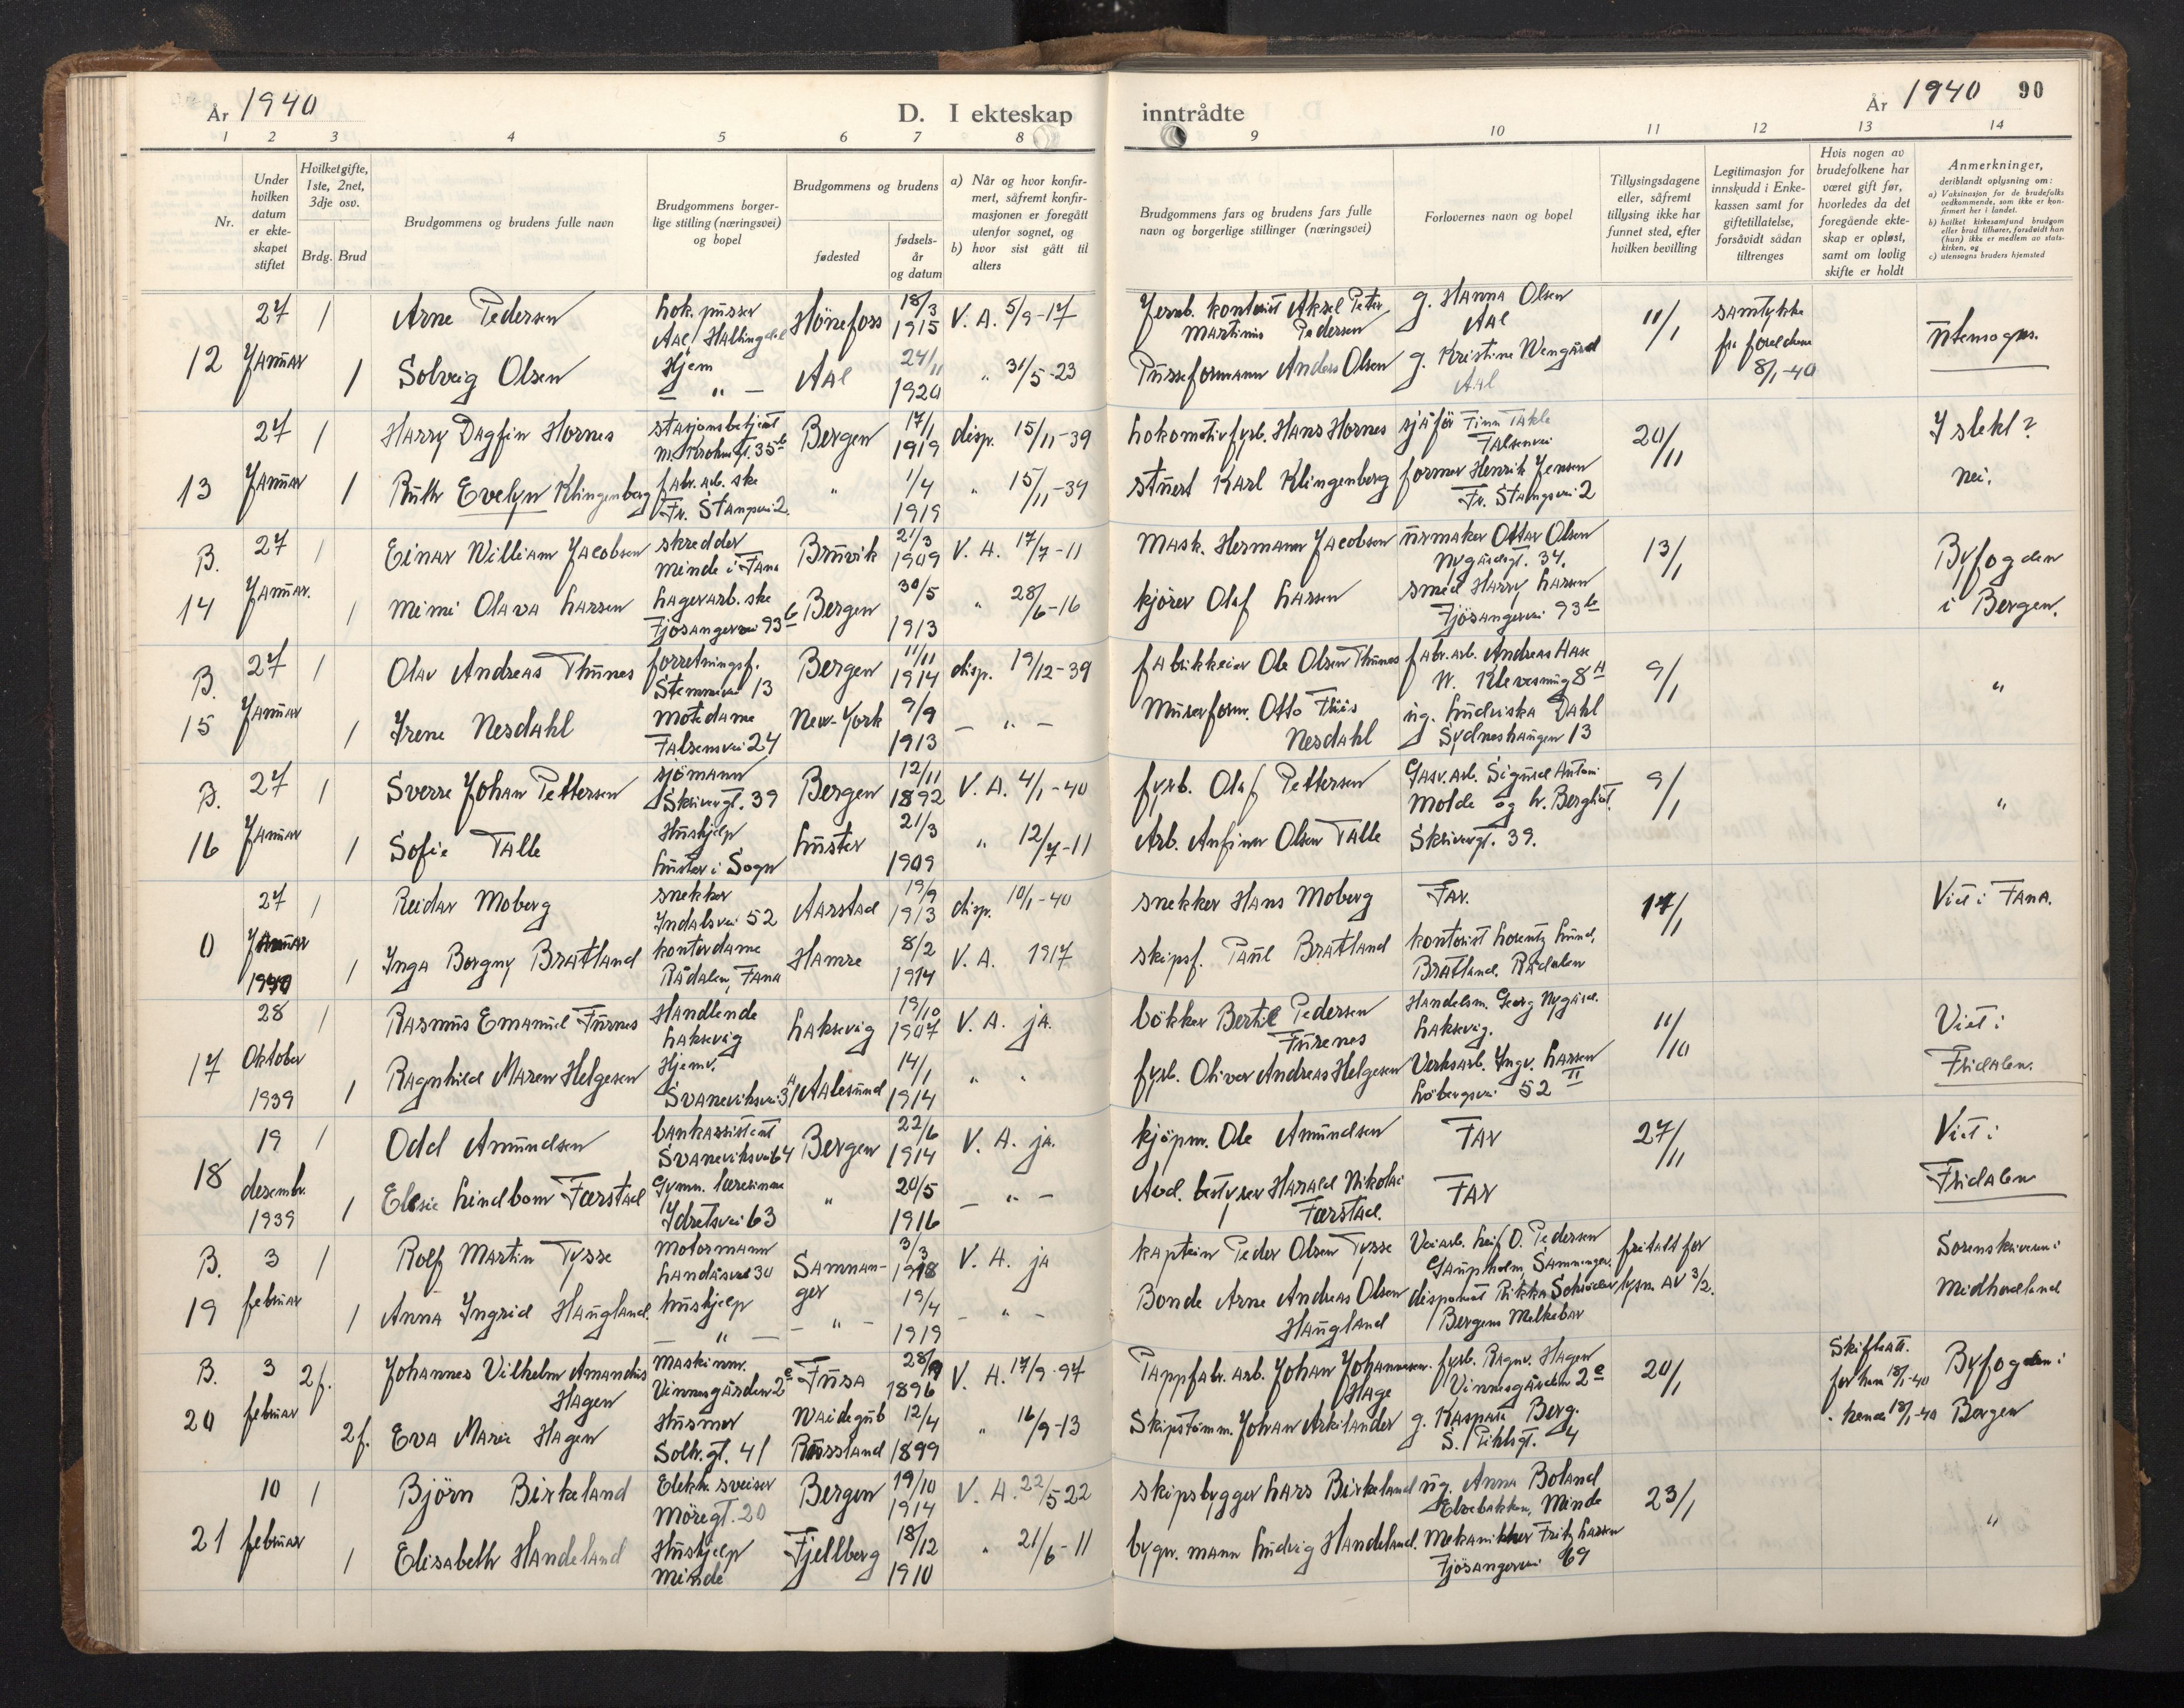 År 1940
D. I ekteskap
inntrådte
År 1940 90
1 2 3 4 5 6 7 8
9 10 11 12 13 14
Nr.
Under hvilken datum er ekteskapet stiftet
Hvilket gifte, 1ste, 2net, 3dje osv.
Brdg. Brud
Brudgommens og brudens fulle navn
Brudgommens borgerlige stilling (næringsvei) og bopel
Brudgommens og brudens
fødested
fødselsår og datum
a) Når og hvor konfirmert, såfremt konfirmasjonen er foregått utenfor sognet, og
b) hvor sist gått til alters
Brudgommens fars og brudens fars fulle navn og borgerlige stillinger (næringsvei)
Forlovernes navn og bopel
Tillysingsdagene eller, såfremt tillysing ikke har funnet sted, efter hvilken bevilling
Legitimasjon for innskudd i Enkekassen samt for giftetillatelse, forsåvidt sådan tiltrenges
Hvis nogen av brudefolkene har været gift før, hvorledes da det foregående ekteskap er opløst, samt om lovlig skifte er holdt
Anmerkninger, deriblandt oplysning om:
a) Vaksinasjon for de brudefolks vedkommende, som ikke er konfirmert her i landet.
b) hvilket kirkesamfund brudgom eller brud tilhører, forsåvidt han (hun) ikke er medlem av statskirken, og
c) utensogns bruders hjemsted
12 27 Januar
1 Arne Pedersen Lok. pusser Aal/Hallingdal Hönefoss 18/3 1915 V. A. 5/9-17
Jernb. kontorist Aksel Peter Martinius Pedersen g. Hanna Olsen Aal 11/1 samtykke fra foreldrene 8/1-40 Utensogns.
1 Solveig Olsen Hjem " Aal 24/11 1920 " 31/5-23
Pusseformann Anders Olsen g. Kristine Wengård Aal
13 27 Januar
1 Harry Dagfin Hornes stasjonsbetjent M. Krohnsgt. 35b Bergen 17/1 1919 disp. 15/11-39
Lokomotivfyrb. Hans Hornes sjåför Finn Takle Falsenvei 20/11 I slekt?
1 Ruth Evelyn Klingenberg fabr.arb.ske Fr. Stangsvei 2. " 1/4 1919 " 15/11-39
Stuert Karl Klingenberg former Henrik Jensen Fr. Stangsvei 2 nei.
B. 14 27 Januar.
1 Einar William Jacobsen skredder Minde i Fana Bruvik 21/3 1909 V. A. 17/7-11
Mask. Hermann Jacobsen urmaker Ottar Olsen Nygårdsgt. 34. 13/1 Byfogden i Bergen.
1 Mimi Olava Larsen Lagerarb.ske Fjösangervei 93b Bergen 30/5 1913 " 28/6-16
kjörer Olaf Larsen smed Harry Larsen Fjösangervei 93b
B. 15 27 Januar
1 Olav Andreas Thunes forretningsf. Stemmevei 13 Bergen 11/11 1914 disp. 19/12-39
fabrikkeier Ole Olsen Thunes fabr.arb. Andreas Aase N. Klevesmug 8A 9/1 "
1 Irene Nesdahl Motedame Falsensvei 24 New-York 9/9 1913 - " -
Murerform. Otto Friis Nesdahl ug. Ludviska Dahl Sydneshaugen 13
B. 16 27 Januar
1 Sverre Johan Pettersen sjömann Skrivergt. 39 Bergen 12/11 1892 V. A. 4/1-40
fyrb. Olaf Pettersen Gasv.arb. Sigurd Antoni Molde og h. Bergliot 9/1 "
1 Sofie Talle Hushjelp Luster i Sogn Luster 21/3 1909 " 12/7-11
Arb. Anfinn Olsen Talle Skrivergt. 39.
0 27 Januar 1940
1 Reidar Moberg snekker Indalsvei 52 Aarstad 19/9 1913 disp. 10/1-40
snekker Hans Moberg Far. 17/1 Viet i Fana.
1 Inga Borgny Bratland kontordame Rådalen, Fana Hamre 8/2 1914 V. A. 1917
skipsf. Paul Bratland kontorist Lorentz Lund, Bratland. Rådalen
17 28 Oktober 1939
1 Rasmus Emanuel Furnes Handlende Laksevåg Laksevåg 19/10 1907 V. A. ja.
bökker Bertil Pedersen Furenes Handelsm. Georg Nygård. Laksevåg. 11/10 Viet i Fridalen.
1 Ragnhild Maren Helgesen Hjemv. Svaneviksvei 3A Aalesund 14/1 1914 " "
fyrb. Oliver Andreas Helgesen Verksarb. Ingv. Larsen Löbergsvei 52 II
18 19 desembr. 1939
1 Odd Amundsen bankassistent Svaneviksvei 64 Bergen 22/6 1914 V. A. ja.
kjöpm. Ole Amundsen Far 27/11 Viet i Fridalen
1 Elsie Lindbom Færstad Gymn. lærerinne Idretsvei 63 " 20/5 1916 - " -
Avd. bestyrer Harald Nikolai Færstad. Far
B. 19 3 februar
1 Rolf Martin Tysse Motormann Landåsvei 30 Samnanger 3/3 1918 V. A. ja
kaptein Peder Olsen Tysse Veiarb. Leif O. Pedersen Gaupholm, Samnanger. fritatt for lysn. av 3/2. Sorenskriveren i Midhordland
1 Anna Ingrid Haugland. hushjelp - " - - " - 19/4 1919 - " -
Bonde Arne Andreas Olsen Haugland disponent Rikka Schröder Bergens Melkebar
B. 20 3 februar
2f. Johannes Vilhelm Amandus Hagen Maskinm. Vinnesgården 2e Fusa 28/9 1896 V. A. 17/9-97
Tappfabr.arb. Johan Johannessen Hage fyrb. Ragnv. Hagen Vinnesgården 2e 20/1 Skifteatt. for ham 18/1-40 Byfogden i
2f. Eva Maria Hagen Husmor Solh.gt. 41 Waidegub Russland 12/4 1899 " 16/9-13
Skipstömm. Johan Arkilander g. Kaspara Berg. S. Pihlsgt. 4 " henne 18/1-40 Bergen
21 10 februar
1 Björn Birkeland Elektr. sveiser Möregt. 20 Bergen 19/10 1914 V. A. 22/5-22
skipsbygger Lars Birkeland ug. Anna Boland Elvebakken, Minde 23/1 "
1 Elisabeth Handeland Hushjelp Minde Fjellberg 18/12 1910 " 21/6-11
bygn. mann Ludvig Handeland. Mekaniker Fritz Larsen Fjösangervei 69